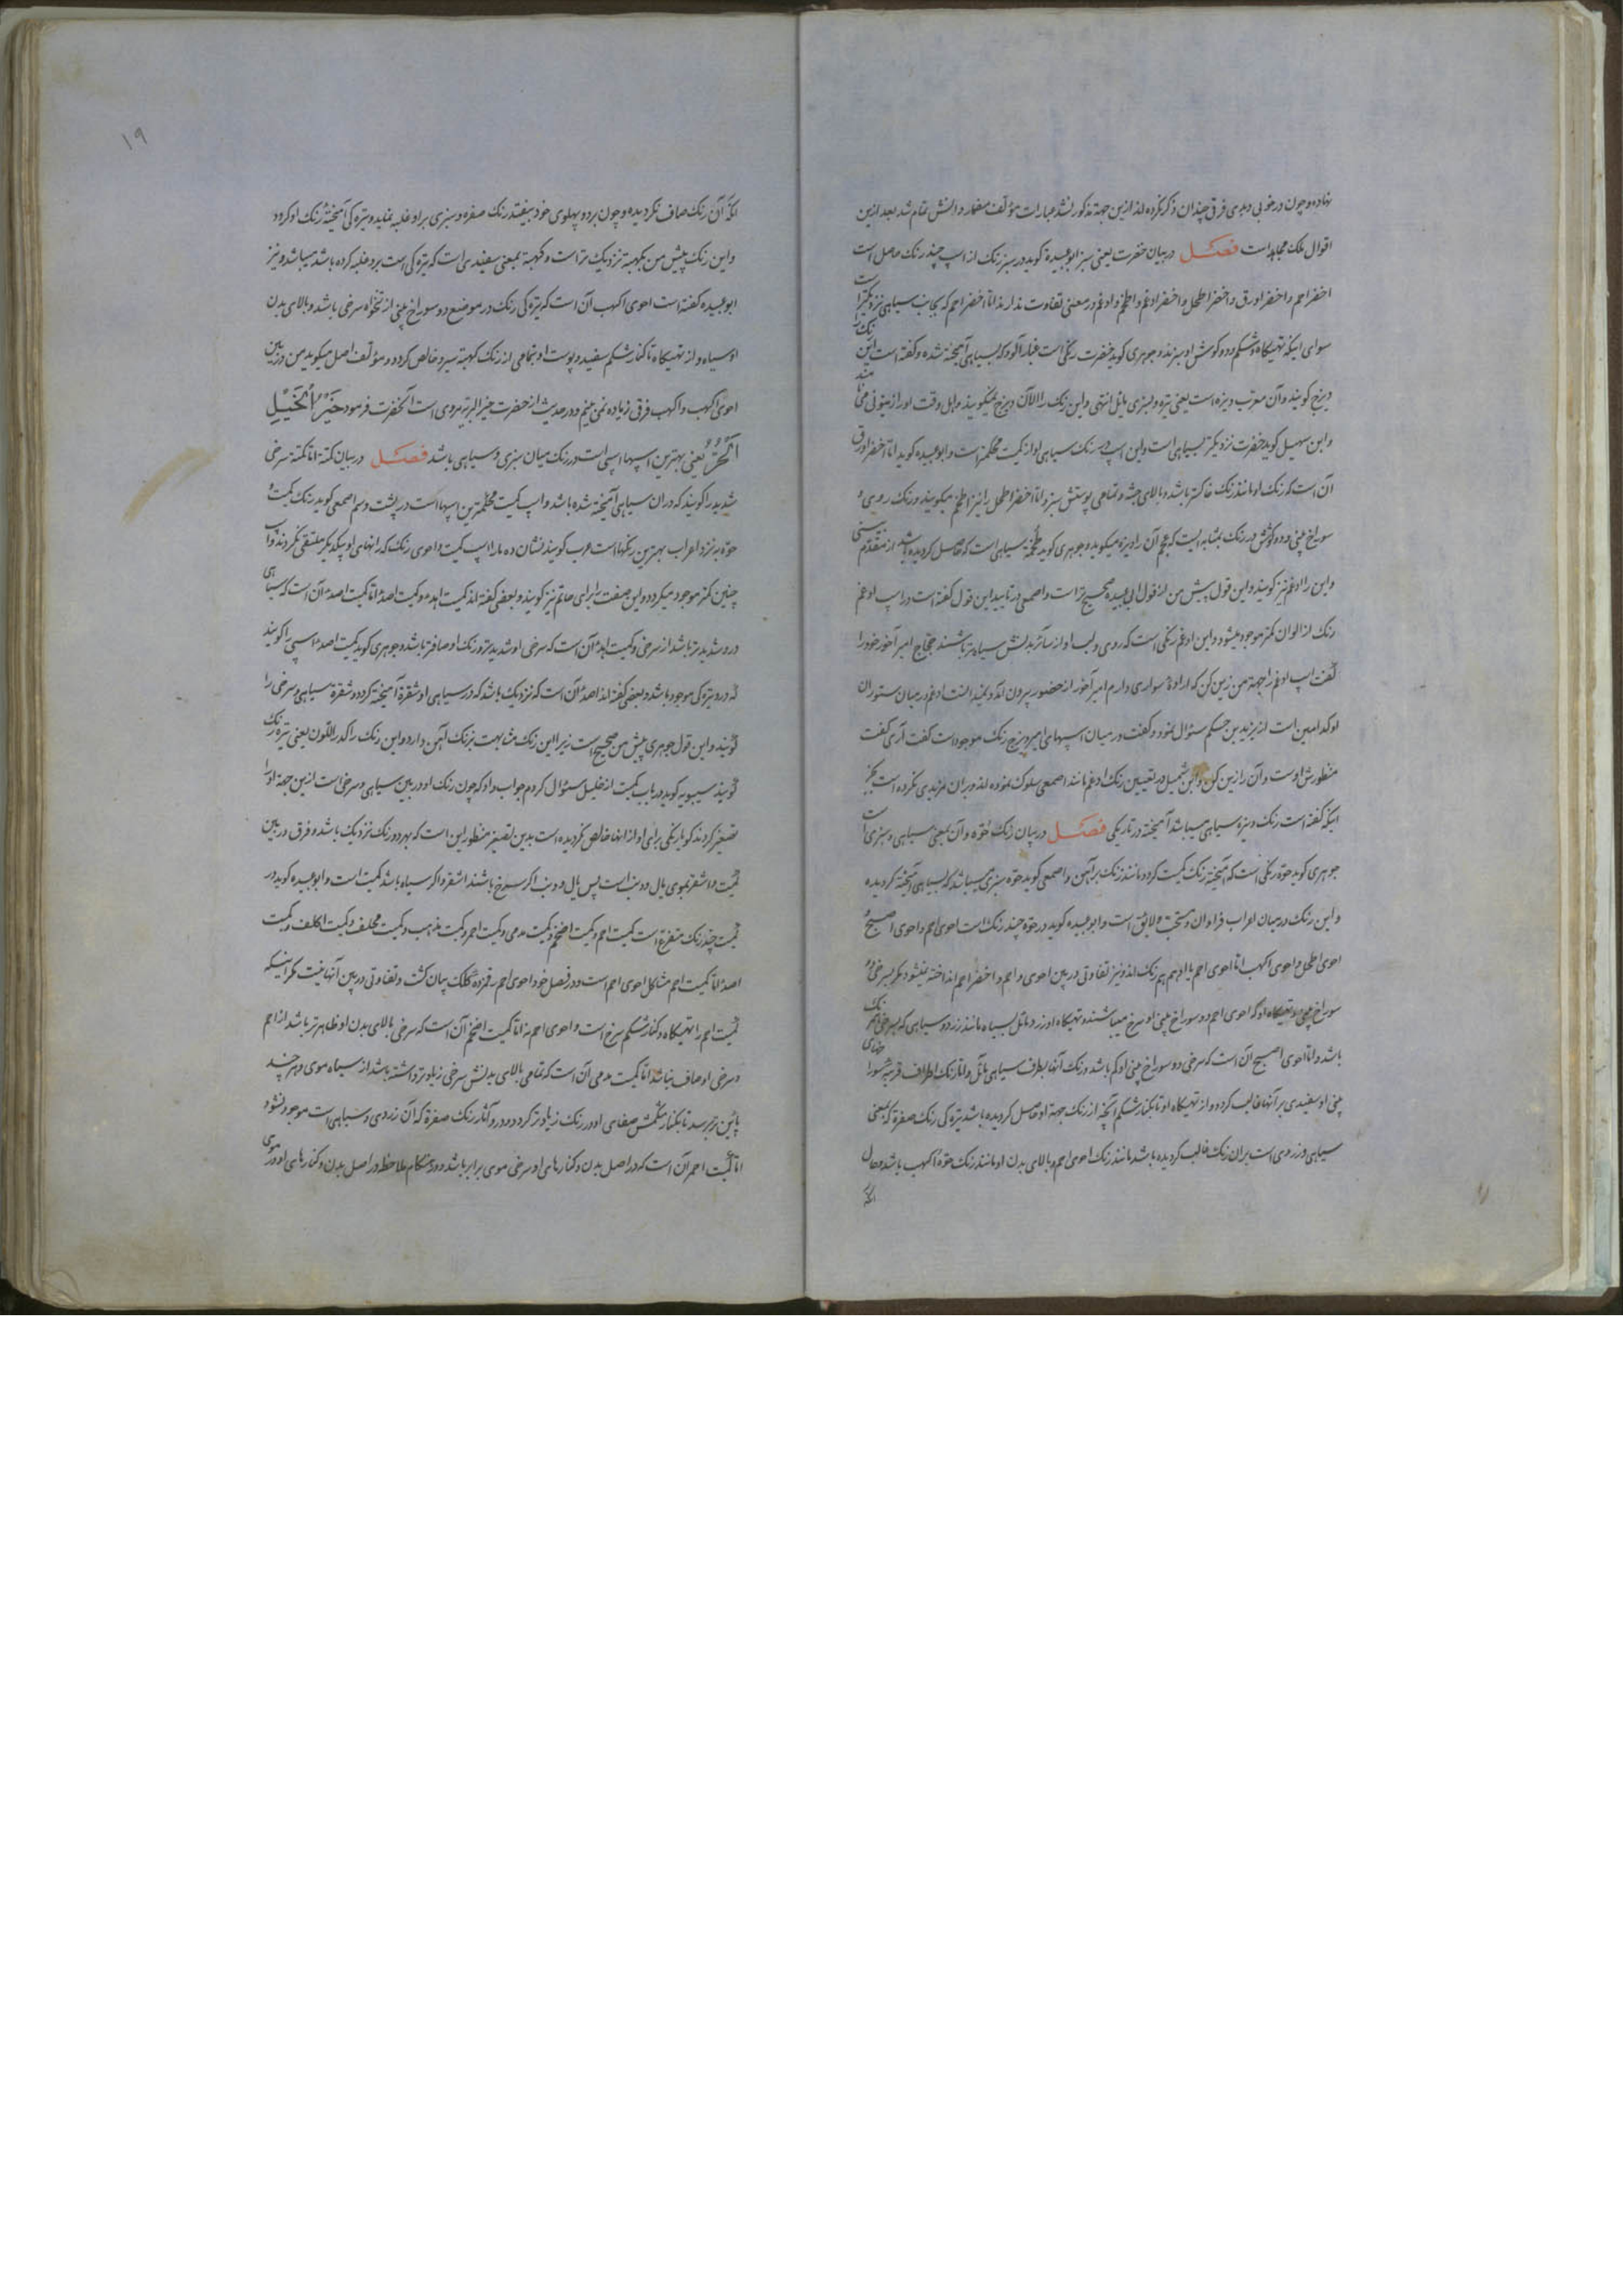 نهاده و چون در خوبی و بدی فرق چندان ذکر نکرده اند ازین جهة مذکور نشد عبارات مؤلف مضمار دانش تمام شد بعد ازین
اقوال ملک مجاهد است فصل در بیان خضرت یعنی سبز ابو عبیدة کوید در سبز رنک از اسپ چند رنک حاصل است
اخضر احم و اخضر اورق و اخضر اطحل و اخضر ادغم و اطخم و ادغم در معنی تفاوت ندارند اما اخضر احم که بجانب سیاهی نزدیکتر است
سوای اینکه تهیکاه و شکم و دو کوش او سبزند و جوهری کوید خضرت رنکی است غبار آلود که بسیاهی آمیخته شده و کفته است این رنک را
دیزج کویند و آن معرب دیزه است یعنی تیره و بسبزی مایل انتهی و این رنک را الآن دیزج میکویند و اهل وقت او را زیتونی می نامند
و ابن سهیل کوید خضرت نزدیکتر بسیاهی است و این اسپ در رنک سیاهی او از کمیت محکمتر است و ابو عبیده کوید اما اخضر اورق
آن است که رنک او مانند رنک خاکستر باشد و بالای جثه و تمامی پوستش سبز و اما اخضر اطحل را نیز اطخم میکویند و رنک روی و
سوراخ بینی و دو کوشش در رنک بمثابه ایست که عجم آن را دیزه میکوید و جوهری کوید طخمة سیاهی است که حاصل کردیده باشد از مقدم بینی
و این را ادغم نیز کویند و این قول پیش من از قول ابی عبیده صحیح تر است و اصمعی در تایید این قول کفته است در اسپ ادغم
رنک از الوان کمتر موجود میشود و این ادغم رنکی است که روی و لب او از سائر بدنش سیاه تر باشند حجاج امیر آخور خود را
کفت اسپ ادغم را جهة من زین کن که اراده سواری دارم امیر آخور از حضور بیرون آمد و نمیدانست ادغم در میان ستوران
او کدامین است از یزید بن حکم سئوال نمود و کفت در میان اسپهای امیر دیزج رنک موجود است کفت آری کفت
منظورش اوست و آن را زین کن و ابن شمیل در تعیین رنک ادغم مانند اصمعی سلوک نموده اند و بر آن مزیدی نکرده است بجز
اینکه کفته است رنک دیزه سیاهی میباشد آمیخته در تاریکی فصل در بیان رنک حوّه و آن بمعنی سیاهی و سبزی است
جوهری کوید حوّه رنکی است که آمیخته رنک کمیت کردد مانند رنک بر آهن و اصمعی کوید حوّه سبزی میباشد که بسیاهی آمیخته کردیده
و این رنک در میان اعراب فراوان و مستحب و لایق است و ابو عبیده کوید در حوّه چند رنک است احوی احم و احوی اصبح و
احوی اطحل و احوی اکهب اما احوی احم با ادهم هم رنک اند و نیز تفاوتی در بین احوی و احم و اخضر احم انداخته میشود مکر بسرخی دو
سوراخ بینی و تهیکاه او که احوی احم دو سوراخ بینی او سرخ میباشند و تهیکاه او زرد و مائل بسیاه مانند زرد و سیاهی که بسرخی هم رنک
باشد و اما احوی اصبح آن است که سرخی دو سوراخ بینی او کم باشد و رنک آنها بطرف سیاهی مائل و اما رنک اطراف قریبه سوراخهای
بینی او سفیدی بر آنها غالب کردد و از تهیکاه او تا بکنار شکم آنچه از رنک جهة او حاصل کردیده باشد تیره کی رنک صفرة که بمعنی
سیاهی و زردی است بر آن رنک غالب کردیده باشد مانند رنک احوی احم و بالای بدن او مانند رنک حوّه اکهب باشد و حال
انکه
١٩
انکه آن رنک صاف نکردیده و چون بر دو پهلوی خود بیفتد رنک صفره و سبزی بر او غلبه نماید و تیره کی آمیخته رنک او کردد
و این رنک پیش من بکهبه نزدیک تر است و کهبة بمعنی سفیدی است که تیره کی است بر و غلبه کرده باشد میباشد و نیز
ابو عبیده کفته است احوی اکهب آن است که تیره کی رنک در موضع دو سوراخ بینی از نخواه سرخی باشد و بالای بدن
او سیاه و از تهیکاه تا کنار شکم سفید و پوست او بتمامی از رنک کهبة سیر و خالص کردد و مؤلف اصل میکوید من در بین
احوی اکهب و اکهب فرقی زیاده نمی بینم و در حدیث از حضرت خیر البریه مروی است آنحضرت فرمود خَیْرُ الْخَیْلِ
اَلْحُوُّ یعنی بهترین اسپها اسپی است در رنک میان سبزی و سیاهی باشد فصل در بیان کمتة اما کمتة سرخی
شدید را کویند که در ان سیاهی آمیخته شده باشد و اسپ کمیت محکمترین اسپها است در پشت و سم اصمعی کوید رنک کمیت و
حوّه نزد اعراب بهترین رنکها است عرب کویند نشان ده مارا اسپ کمیت و احوی رنک که رانهای او بیکدیکر ملتقی نکردند و اسپ
چنین کمتر موجود میکردد و این صفت را برای حاتم نیز کویند و بعضی کفته اند کمیت ابدء و کمیت اصدء اما کمیت اصدء آن است که سیاهی
درو شدید تر باشد از سرخی و کمیت ابدء آن است که سرخی او شدید تر و رنک او صافتر باشد و جوهری کوید کمیت اصدء اسپی را کویند
که درو تیره کی موجود باشد و بعضی کفته اند اصدء آن است که نزدیک باشد که در سیاهی او شقرة آمیخته کردد و شقرة سیاهی و سرخی را
کویند و این قول جوهری پیش من صحیح است زیرا این رنک مشابهت برنک آهن دارد و این رنک را اکدر اللون یعنی تیره رنک
کویند سیبویه کوید در باب کمیت از خلیل سئوال کردم جواب داد که چون رنک او در بین سیاهی و سرخی است ازین جهة او را
تصغیر کردند کویا رنکی برای او از انها خالص نکردیده است بدین تصغیر منظور این است که بهر دو رنک نزدیک باشد و فرق در بین
کمیت و اشقر بموی یال و دنب است پس یال و دنب اکر سرخ باشند اشقر و اکر سیاه باشد کمیت است و ابو عبیده کوید در
کمیت چند رنک متفرع است کمیت احم و کمیت اضخم و کمیت مدمی و کمیت احمر و کمیت مذهب و کمیت محلف و کمیت اکلف و کمیت
اصدء اما کمیت احم مشاکل احوی احم است و در فصل خود احوی احم رقمزده کلک بیان کشت و تفاوتی در بین آنها نیست مکر اینکه
کمیت احم را تهیکاه و کنار شکم سرخ است و احوی احم نه اما کمیت اضخم آن است که سرخی بالای بدن او ظاهرتر باشد از احم
و سرخی او صاف نباشد اما کمیت مدمی آن است که تمامی بالای بدنش سرخی زیادتر داشته باشد از سیاه موی و هر چند
پائین تر برسد تا بکنار شکمش صفای او در رنک زیادتر کردد و درو آثار رنک صفرة که آن زردی و سیاهی است موجود نشود
اما کمیت احمر آن است که در اصل بدن و کنارهای او سرخی موی برابر باشد و در هنکام ملاحظه در اصل بدن و کنارهای او در موی